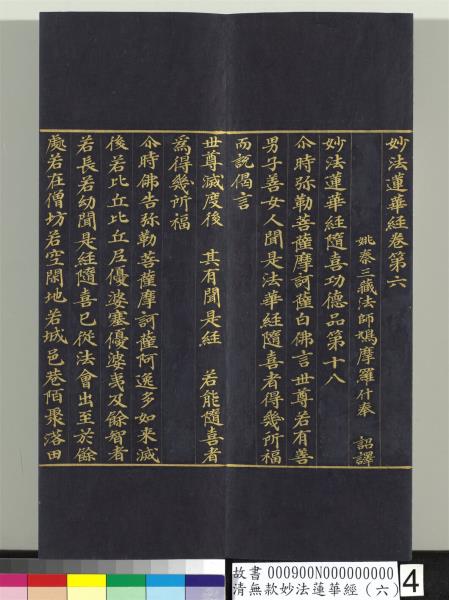 妙法蓮華經卷第六
姚秦三藏法師鳩摩羅什奉 詔譯
妙法蓮華經隨喜功德品第十八
尒時弥勒菩薩摩訶薩白佛言世尊若有善
男子善女人聞是法華經隨喜者得幾所福
而說偈言
世尊滅度後 其有聞是經 若能隨喜者
為得幾所福
尒時佛告弥勒菩薩摩訶薩阿逸多如來滅
後若比丘比丘尼優婆塞優婆夷及餘智者
若長若幼聞是經隨喜已從法會出至於餘
處若在僧坊若空閑地若城邑巷陌聚落田
故書 000900N000000000
清無款妙法蓮華經（六）
4